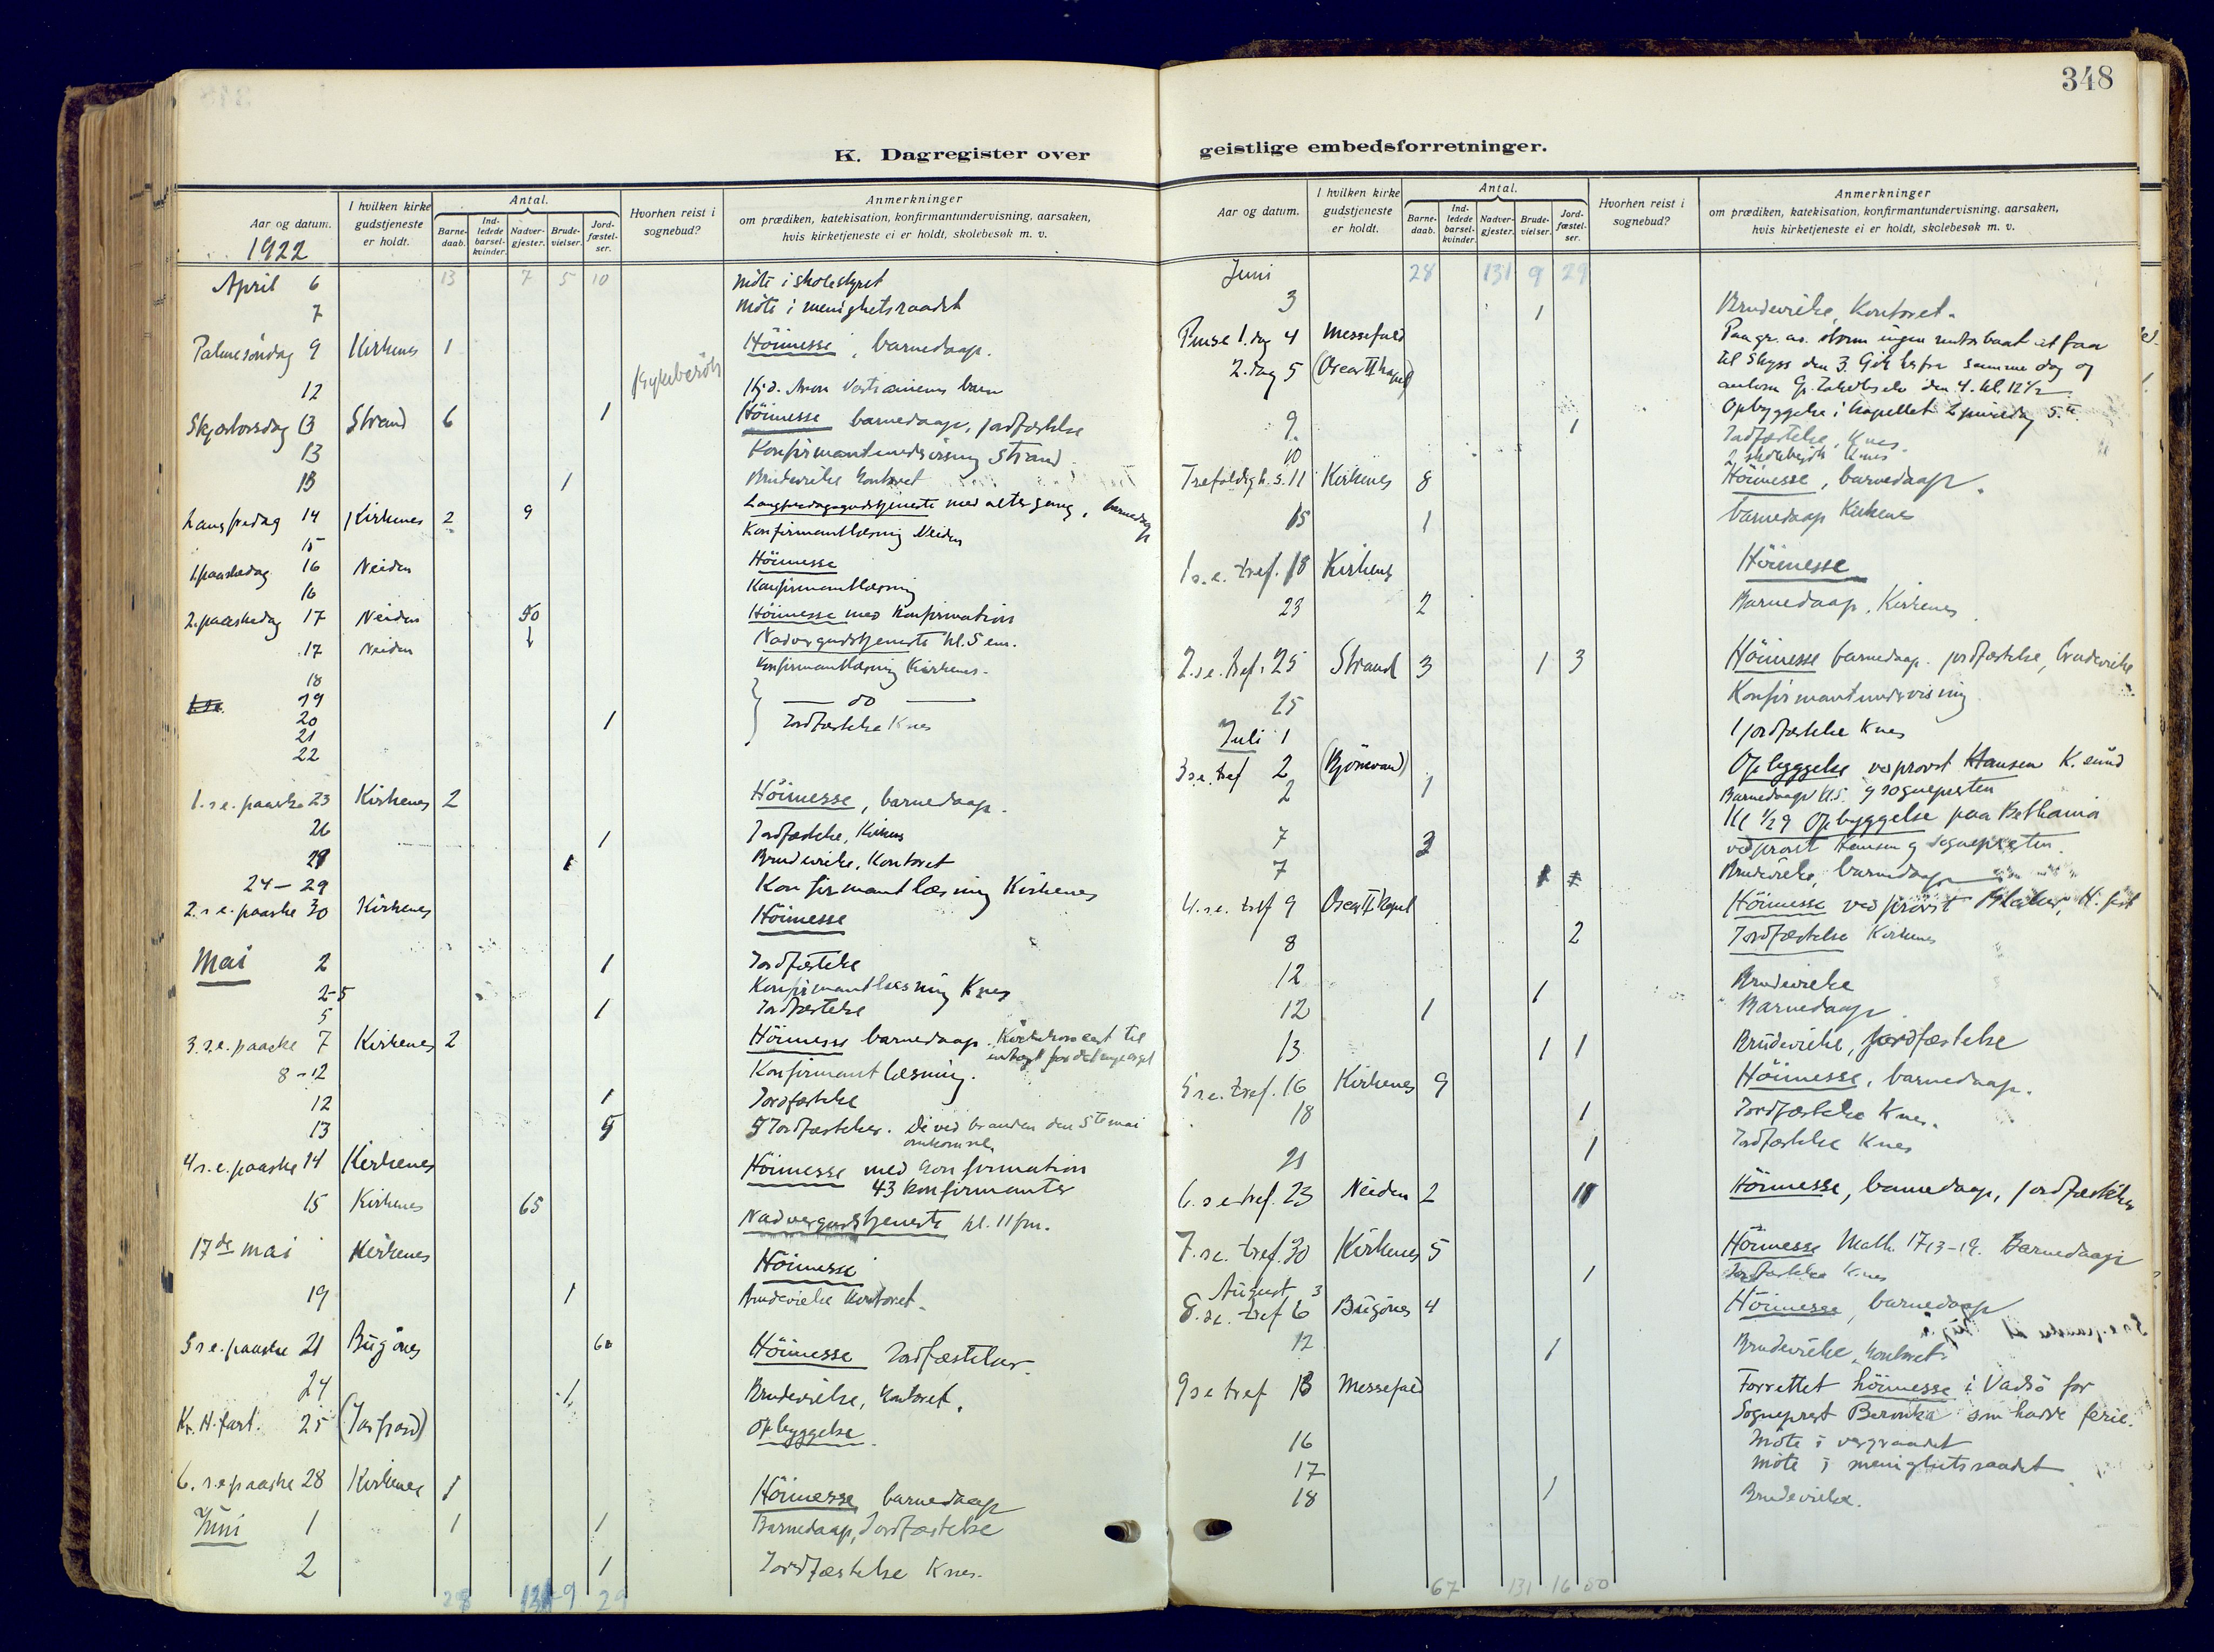 348
K. Dagregister over geistlige embedsforretninger.
Aar og datum. I hvilken kirke gudstjeneste er holdt. Antal. Barnedaab. Indledede barselkvinder. Nadvergjester. Brudevielser. Jordfæstelser. Hvorhen reist i sognebud? Anmerkninger om prædiken, katekisation, konfirmantundervisning, aarsaken, hvis kirketjeneste ei er holdt, skolebesøk m. v.
1922
April 6 13 7 5 10 Møte i skolestyret
7 Møte i menighetsraadet
Palmesøndag 9 Kirkenes 1 Höimesse, barnedaap.
12 Sykebesök
Skjærtorsdag 13 Strand 6 1 Höimesse barnedaap, jordfæstelse
13 Konfirmantundervisning Strand
13 1 Brudevielse kontoret
Langfredag 14 Kirkenes 2 9 Langfredagsgudstjeneste med altergang, barnedaap
15 Konfirmantlæsning Neiden
1. paaskedag 16 Neiden Höimesse
16 Konfirmantlæsning
2. paaskedag 17 Neiden 50 Höimesse med konfirmation
17 Neiden Nadvergudstjeneste kl. 5 em.
18 Konfirmantlæsning Kirkenes.
19 do
20 1 Jordfæstelse Knes
21
22
1. s. e. paaske 23 Kirkenes 2 Höimesse, barnedaap.
26 1 Jordfæstelse, Kirkenes
28 1 Brudevielse, Kontoret
24 – 29 Konfirmantlæsning Kirkenes
2. s. e. paaske 30 Kirkenes Höimesse
Mai 2 1 Jordfæstelse
2-5 Konfirmantlæsning Knes
5 1 Jordfæstelse
3. s. e. paaske 7 Kirkenes 2 Höimesse barnedaap. Kirkekonsert til
indtægt for det nye orgel
8 – 12 Konfirmantlæsning.
12 1 Jordfæstelse
13 5 5 Jordfæstelser. De ved branden den 5te mai
omkomne
4 s. e. paaske 14 Kirkenes Höimesse med konfirmation
43 konfirmanter
15 Kirkenes 65 Nadvergudstjeneste kl. 11 fm.
17de mai Kirkenes Höimesse
19 1 Brudevielse Kontoret.
5 s e. paaske 21 Bugönes Höimesse Jordfæstelser
24 1 Brudevielse, kontoret.
Kr. H. fart. 25 (Jarfjord) Opbyggelse.
6. s. e paaske 28 Kirkenes 1 Höimesse barnedaap
Juni 1 1 1 Barnedaap, Jordfæstelse
2 1 Jordfæstelse Knes.
28 131 9 29
Aar og datum. I hvilken kirke gudstjeneste er holdt. Antal. Barnedaab. Indledede barselkvinder. Nadvergjester. Brudevielser. Jordfæstelser. Hvorhen reist i sognebud? Anmerkninger om prædiken, katekisation, konfirmantundervisning, aarsaken, hvis kirketjeneste ei er holdt, skolebesøk m. v.
Juni 28 131 9 29
3 1 Brudevielse, Kontoret.
Pinse 1. dag 4 Messefald Paa gr. av. storm ingen motorbaat at faa
2. dag 5 (Oscar II kapel) til Skyss den 3. Gik herfra samme dag og
ankom Gr. Jakobselv den 4. kl. 12½.
Opbyggelse i kapellet 2 pinsedag 5.
9. 1 Jordfæstelse, Knes.
10 2 skolebesøk Knes
Trefoldigh. s. 11 Kirkenes 8 Höimesse, barnedaap.
15 1 barnedaap Kirkenes
1 s. e. tref. 18 Kirkenes Höimesse
23 2 Barnedaap, Kirkenes
2. s. e. tref. 25 Strand 3 1 3 Höimesse barnedaap. jordfæstelse, brudevielse
25 Konfirmantundervisning
Juli 1 1 jordfæstelse Knes
3 s. e. tref 2 (Bjørnevand) Opbyggelse ved provst Hansen K. sund
2 1 Barnedaap kl. 5. og sognepresten
Kl ½9 Opbyggelse paa Bethania
ved provst Hansen og sognepresten.
7 3
7 Brudevielse, barnedaap
4. s. e. tref 9 Oscar II Kapel Höimesse ved provst H. fest
8 2 Jordfæstelse Kirkenes
12 1 Brudevielse
12 1 Barnedaap
13 1 1 Brudevielse, jordfæstelse
5 s. e. tref. 16 Kirkenes 9 Höimesse, barnedaap.
18 1 Jordfæstelse Knes.
21 1 Jordfæstelse Knes
6. s e tref. 23 Neiden 2 Höimesse, barnedaap, jordfæstelser
7. s. e. tref. 30 Kirkenes 5 Höimesse Math. 17 13-19. Barnedaap
August 3 1 Jordfæstelse Knes
8. s. e. tref 6 Bugönes 4 Höimesse, barnedaap
12 1 Brudevielse, kontoret
9 s e tref 13 Messefald Forrettet höimesse i Vadsö for
Sogneprest som hadde ferie.
16 Møte i vergeraadet
17 Møte i menighetsraadet
18 1 Brudevielse.
67 131 16 50